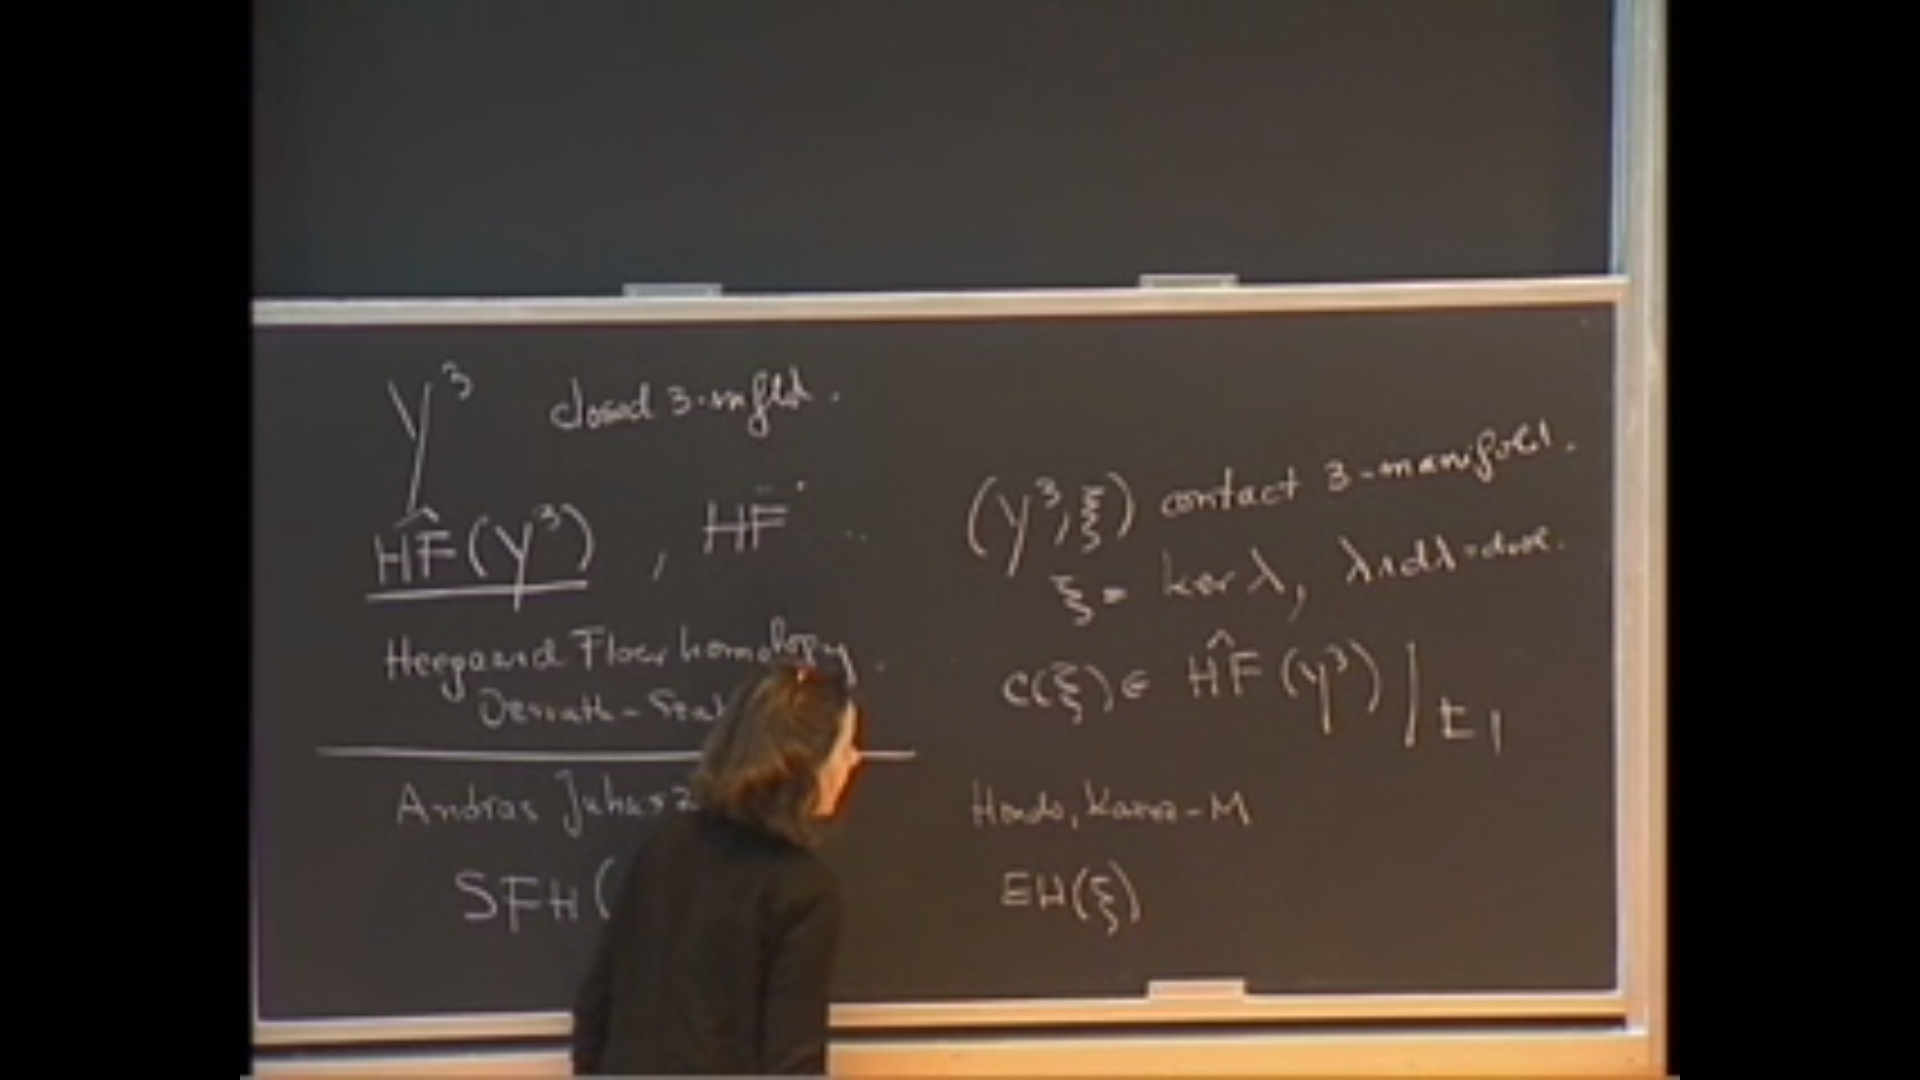 Y³ closed 3-mfld.
ĤF(Y³) , HF ...
Heegaard Floer homology.
Andras Juhasz
SFH(
(Y³, ξ) contact 3-manifold.
ξ = ker λ, λ∧dλ
c(ξ) ∈ ĤF(Y³) |
Honda, Kazez-M
EH(ξ)